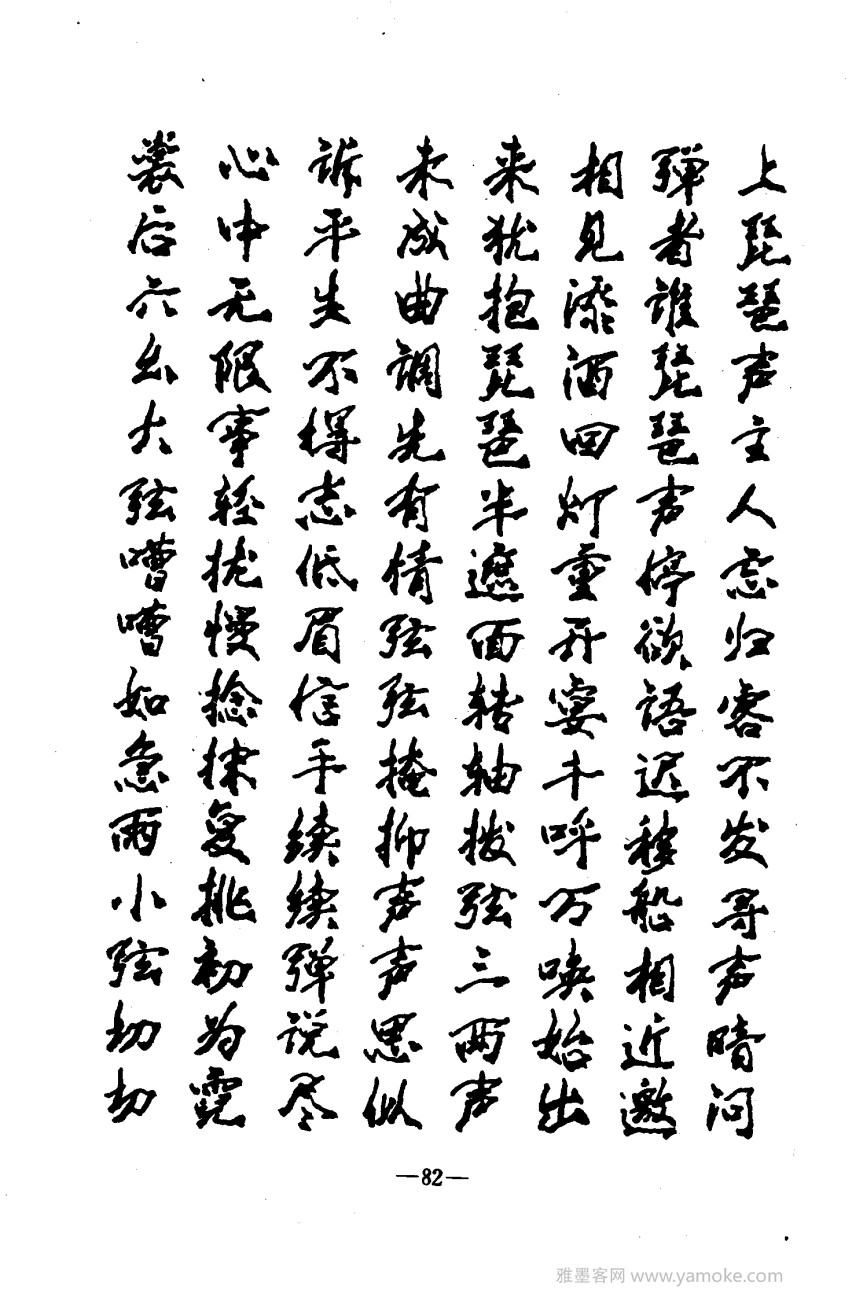 上琵琶声主人忘归客不发寻声暗问
弹者谁琵琶声停欲语迟移船相近邀
相见添酒回灯重开宴千呼万唤始出
来犹抱琵琶半遮面转轴拨弦三两声
未成曲调先有情弦弦掩抑声声思似
诉平生不得志低眉信手续续弹说尽
心中无限事轻拢慢捻抹复挑初为霓
裳后六幺大弦嘈嘈如急雨小弦切切
—82—
雅墨客网 www.yamoke.com